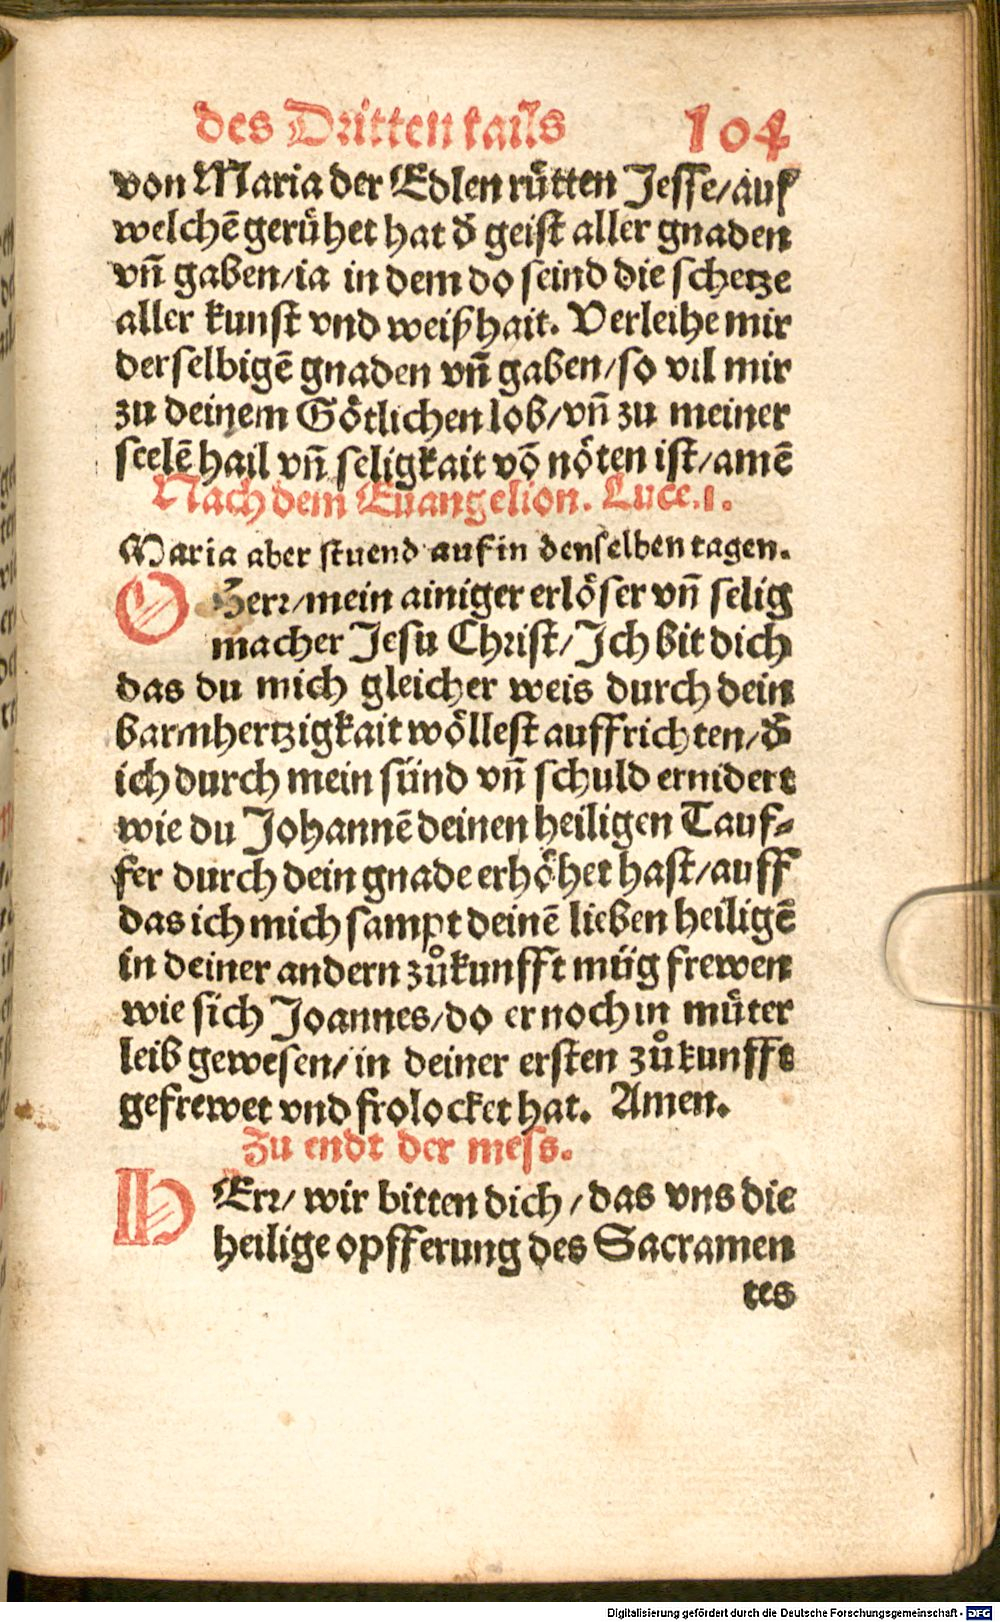 des Dritten tails 104
von Maria der Edlen rütten Jesse/auf
welchē gerühet hat d̄ geist aller gnaden
vn̄ gaben/ia in dem do seind die schetze
aller kunst vnd weißhait. Verleihe mir
derselbigē gnaden vn̄ gaben/so vil mir
zu deinem Götlichen lob/vn̄ zu meiner
seelē hail vn̄ seligkait vō nöten ist/amē
Nach dem Euangelion. Luce.1.
Maria aber stuend auf in denselben tagen.
O Herr/mein ainiger erlöser vn̄ selig
macher Jesu Christ/Ich bit dich
das du mich gleicher weis durch dein
barmhertzigkait wöllest auffrichten/d̄
ich durch mein sünd vn̄ schuld ernidert
wie du Johannē deinen heiligen Tauf⸗
fer durch dein gnade erhöhet hast/auff
das ich mich sampt deinē lieben heiligē
in deiner andern zůkunfft müg frewen
wie sich Joannes/do er noch in müter
leib gewesen/in deiner ersten zůkunfft
gefrewet vnd frolocket hat. Amen.
Zu endt der mess.
HErr/wir bitten dich/das vns die
heilige opfferung des Sacramen
tes
Digitalisierung gefördert durch die Deutsche Forschungsgemeinschaft - DFG